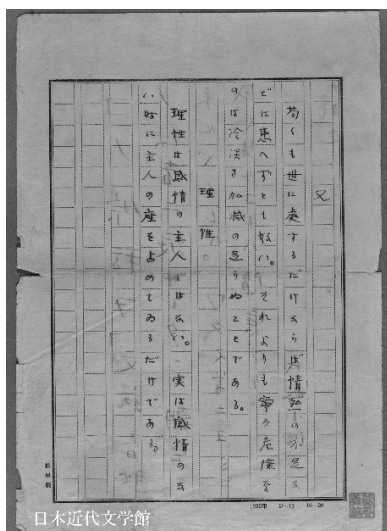 又
苟くも世に処するだけならば情熱の不足な
どは患へずとも好い。それよりも寧ろ危険な
のは冷淡な加減の足りぬことである。
理性
理性は感情の主人ではない。実は感情のな
い時に主人の座を占めてゐるだけである。
日本近代文学館